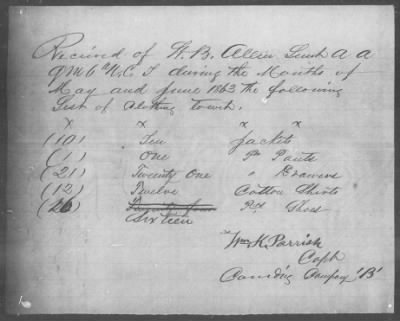 Received of H. B. Allen Lieut A A
Q M 6th N. C. T. during the Months of
May and June 1863 the following
List of Clothing to wit.
x x x
(10) Ten Jackets
(1) One Pr Pants
(21) Twenty One " Drawers
(12) Twelve Cotton Shirts
(26) Prs Shoes
Sixteen
Wm. K. Parrish
Capt
Comdg Company 'B'